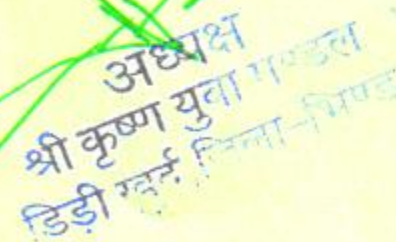 अध्यक्ष
श्री कृष्ण युवा मण्डल
डिड़ी खुर्द जिला-भिण्ड